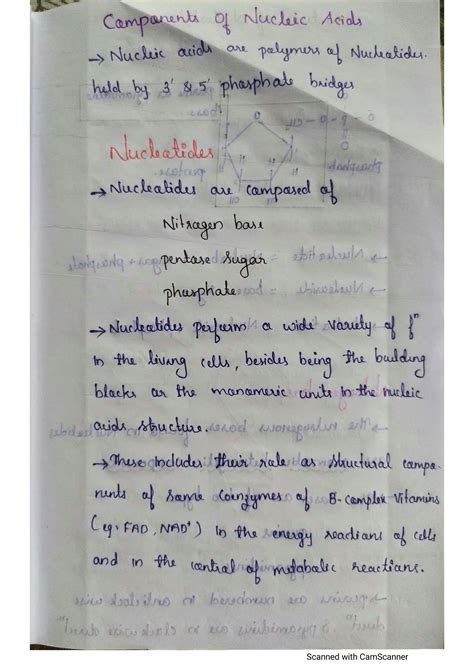 Components of Nucleic Acids
→ Nucleic acids are polymers of Nucleotides.
held by 3' & 5' phosphate bridges
Nucleotides
→ Nucleotides are composed of
Nitrogen base
pentose sugar
phosphate
→ Nucleotides perform a wide variety of fⁿ
in the living cells, besides being the building
blocks or the monomeric units in the nucleic
acids structure.
→ These includes their role as structural compo
nents of some coenzymes of B-complex Vitamins
(eg: FAD, NAD⁺) in the energy reactions of cells
and in the control of metabolic reactions.
Scanned with CamScanner